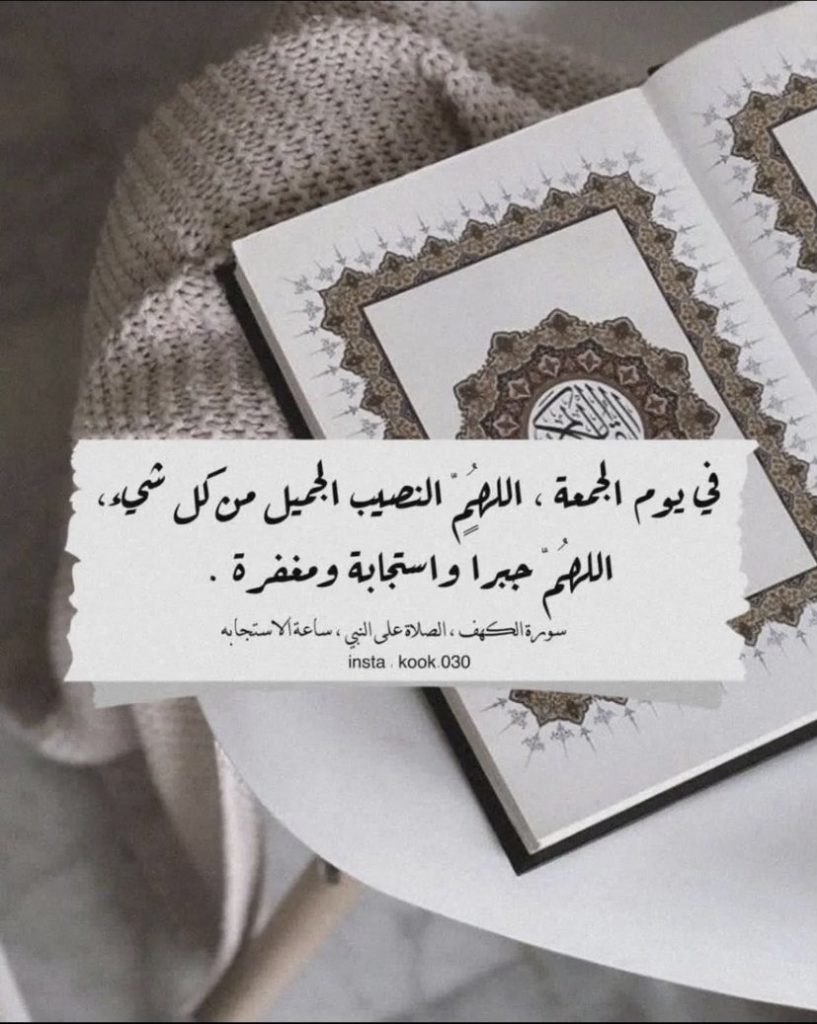 في يوم الجمعة ، اللهم النصيب الجميل من كل شيء،
اللهم جبرا واستجابة ومغفرة .
سورة الكهف ، الصلاة على النبي ، ساعة الاستجابه
insta . kook.030